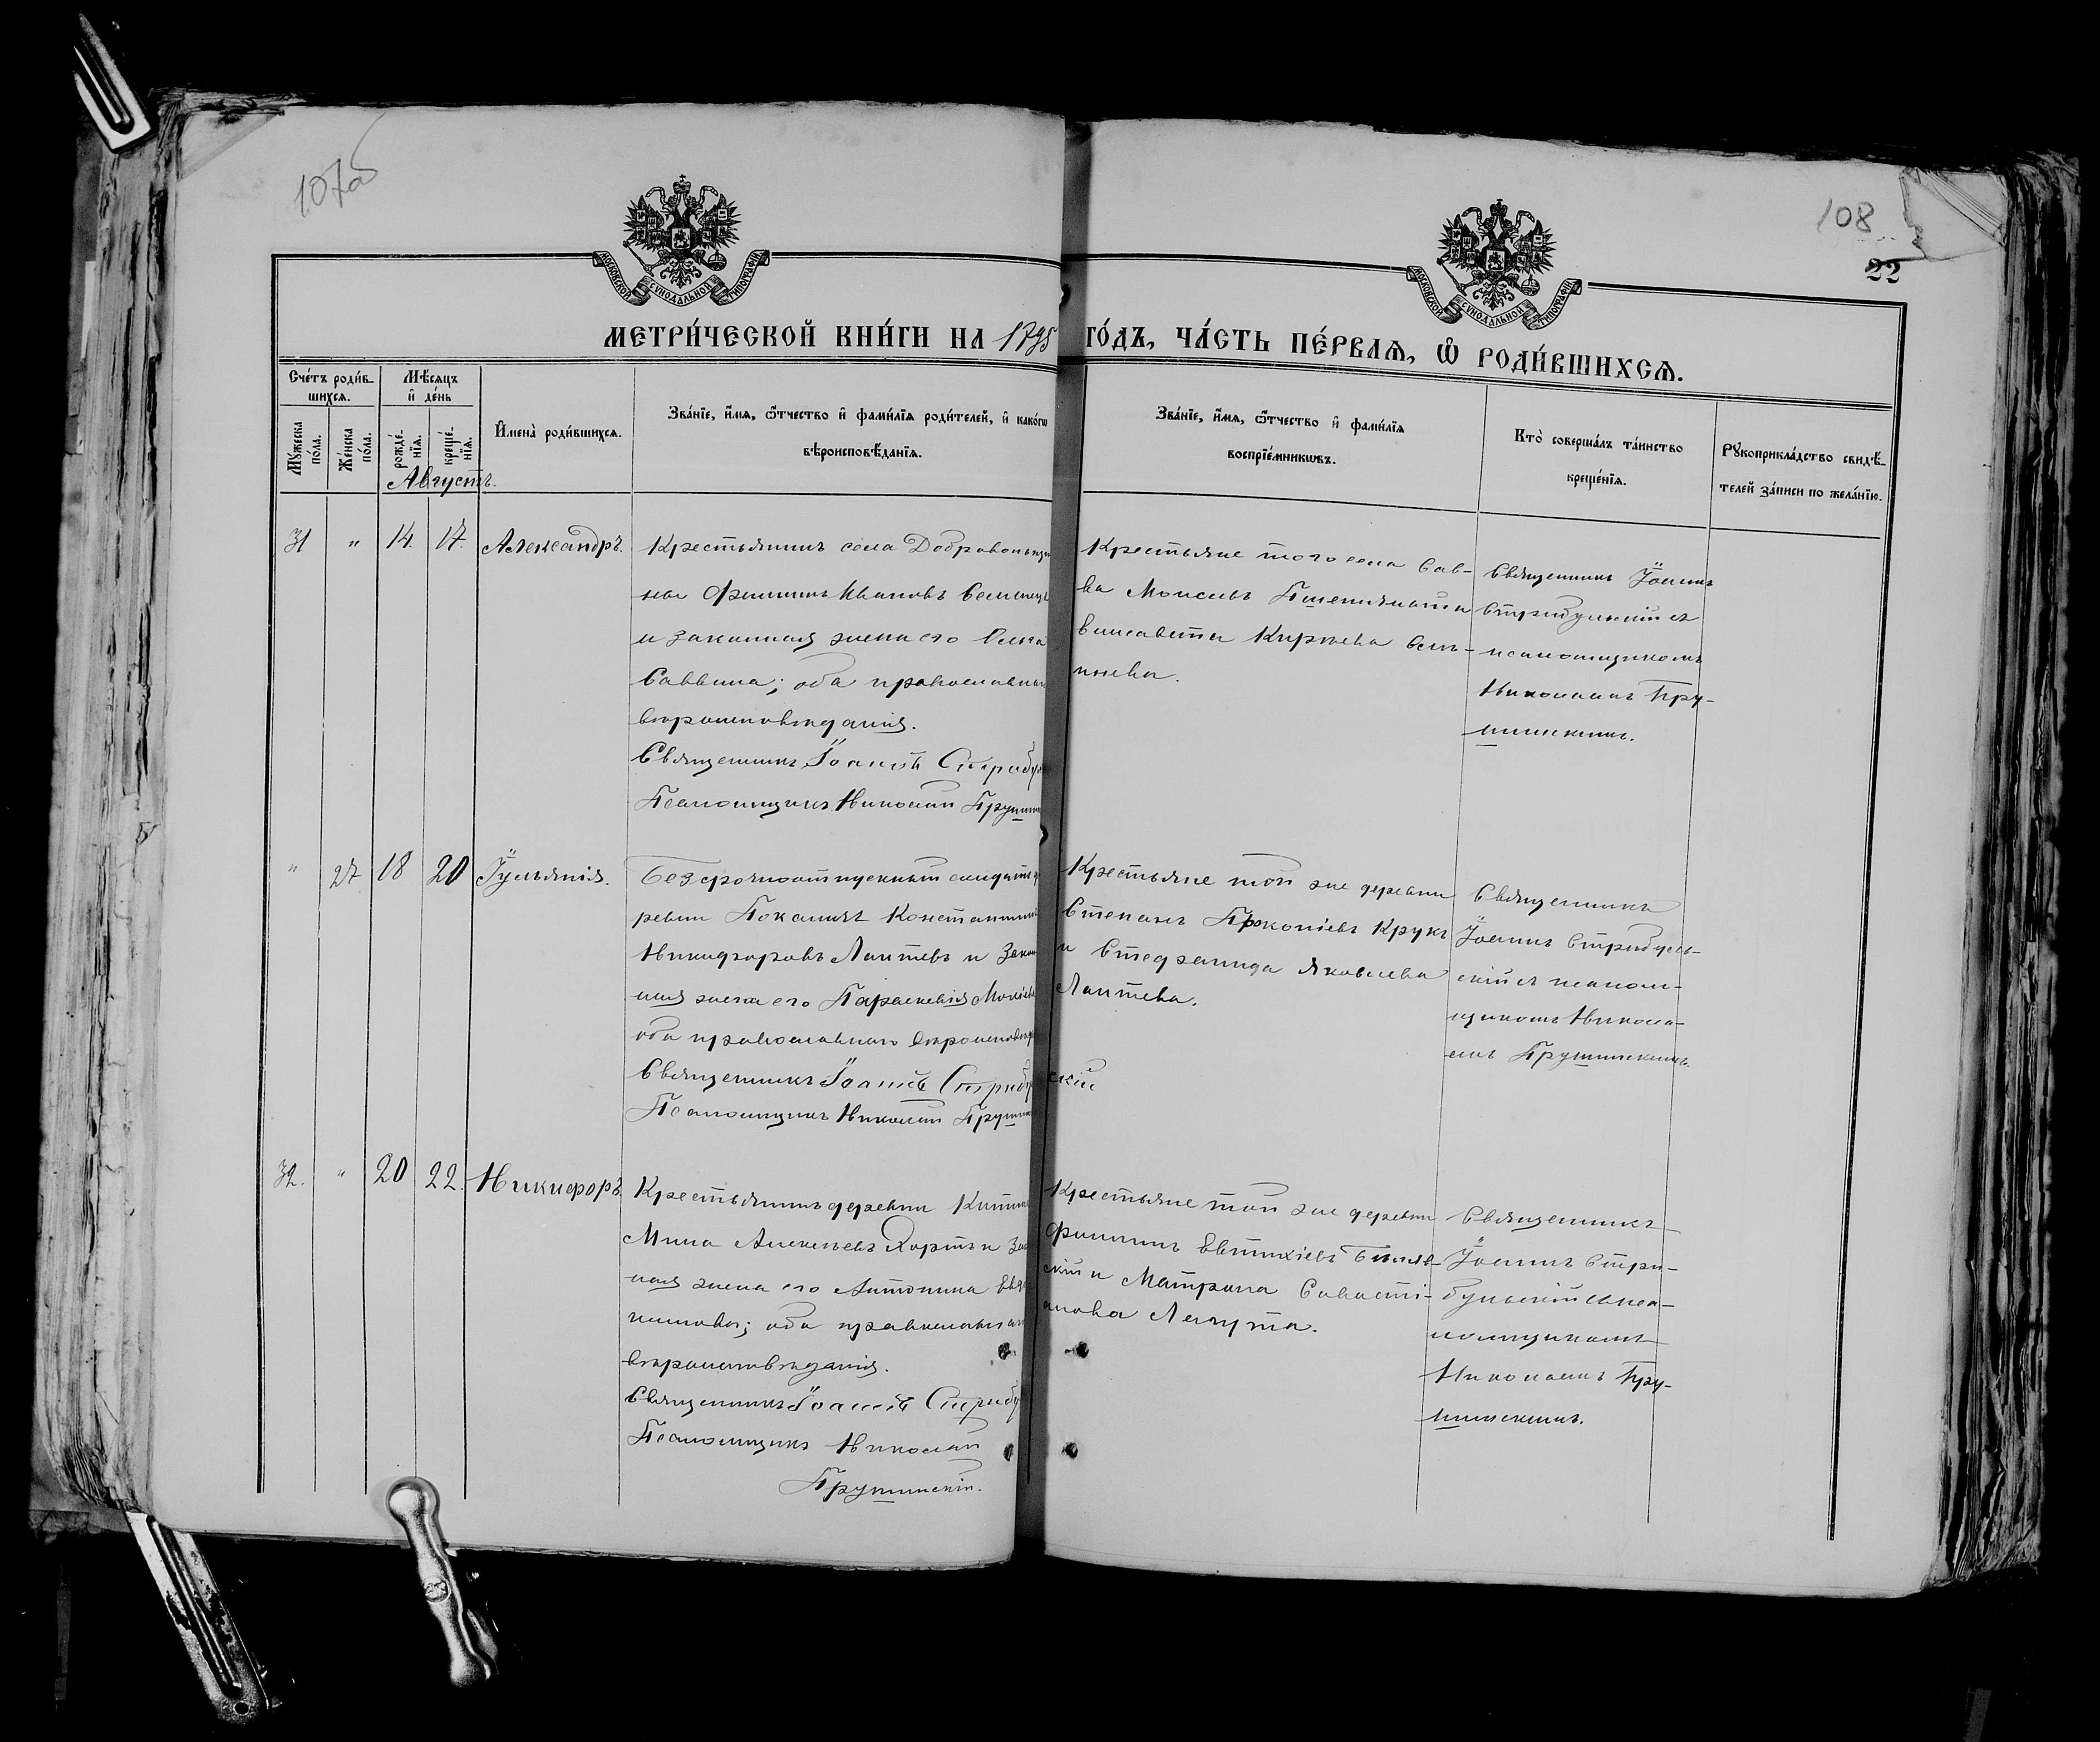 107об
108
22
МОСКОВСКОЙ СѴНОДАЛЬНОЙ ТИПОГРАФІИ
МОСКОВСКОЙ СѴНОДАЛЬНОЙ ТИПОГРАФІИ
МЕТРИ́ЧЕСКОЙ КНИ́ГИ НА 1795 ГО́ДЪ, ЧА́СТЬ ПЕ́РВАѦ, Ѡ҆ РОДИ́ВШИХСѦ.
Сче́тъ роди́в-
шихсѧ.
Мꙋ́жеска по́ла.
Же́нска по́ла.
Мѣ́сѧцъ и҆ де́нь
рожде́-
нїѧ.
креще́-
нїѧ.
Августъ.
И҆мена̀ роди́вшихсѧ.
Зва́нїе, и҆́мѧ, ѻ҆́тчество и҆ фами́лїѧ роди́телей, и҆ како́гѡ
вѣроисповѣ́данїѧ.
Зва́нїе, и҆́мѧ, ѻ҆́тчество и҆ фами́лїѧ
воспрїе́мникѡвъ.
Кто̀ соверша́лъ та́инство
креще́нїѧ.
Рꙋкоприкла́дство свидѣ́-
телей за́писи по жела́нїю.
31 " 14. 17. Александръ.
Крестьянинъ села
Филиппъ Ивановъ
и законная жена его
Саввина; оба православнаго
вѣроисповѣданія.
Священникъ Іоаннъ
Псаломщикъ Николай
Крестьяне того села Сав-
ва Моисеевъ
Елисавета
Священникъ Іоаннъ
Стрибульскій съ
псаломщикомъ
Николаемъ Пру-
шинскимъ.
" 27 18 20 Іуліанія.
Безсрочноотпускный солдатъ де
ревни Константинъ
Никифоровъ Лаптевъ и закон
ная жена его Параскевія
оба православнаго
Священникъ Іоаннъ
Псаломщикъ Николай
Крестьяне той же деревни
Степанъ Прокопіевъ Крукъ
и Стефанида Яковлева
Лаптева.
скій
Священникъ
Іоаннъ Стрибуль-
скій съ псалом-
щикомъ Никола-
емъ Прушинскимъ.
32. " 20 22. Никифоръ.
Крестьянинъ деревни
Мина Алексѣевъ Хортъ и
ная жена его Антонина
оба православнаго
вѣроисповѣданія.
Священникъ Іоаннъ
Псаломщикъ Николай
Прушинскій.
Крестьяне той же деревни
Филиппъ Евтихіевъ
скій и Матрона Савасті-
анова
Священникъ
Іоаннъ Стри-
бульскій съ пса-
ломщикомъ
Николаемъ Пру-
шинскимъ.